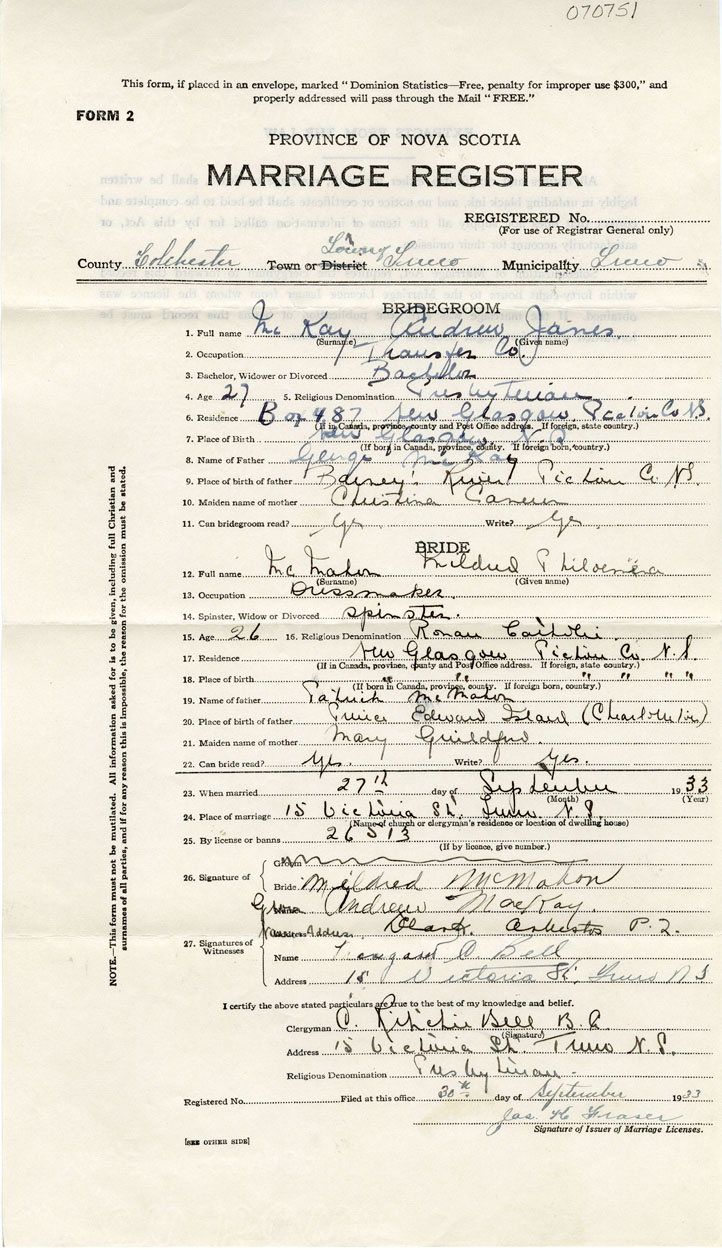 070751
This form, if placed in an envelope, marked "Dominion Statistics—Free, penalty for improper use $300," and
properly addressed will pass through the Mail "FREE."
FORM 2
PROVINCE OF NOVA SCOTIA
MARRIAGE REGISTER
REGISTERED No.
(For use of Registrar General only)
County Colchester Town or District Truro Municipality Truro
BRIDEGROOM
1. Full name Mc Kay Andrew James
(Surname) (Given name)
2. Occupation Transfer Co.
3. Bachelor, Widower or Divorced Bachelor
4. Age 27 5. Religious Denomination Presbyterian
6. Residence Box 487 New Glasgow Pictou Co N.S.
(If in Canada, province, county and Post Office address. If foreign, state country.)
7. Place of Birth New Glasgow N.S
(If born in Canada, province, county. If foreign born, country.)
8. Name of Father George McKay
9. Place of birth of father Barney's River Pictou Co. N.S.
10. Maiden name of mother Christina
11. Can bridegroom read? Yes Write? Yes
BRIDE
12. Full name Mc Mahon Mildred Philomena
(Surname) (Given name)
13. Occupation Dressmaker.
14. Spinster, Widow or Divorced spinster.
15. Age 26 16. Religious Denomination Roman Catholic
17. Residence New Glasgow Pictou Co. N.S.
(If in Canada, province, county and Post Office address. If foreign, state country.)
18. Place of birth " " " " " "
(If born in Canada, province, county. If foreign born, country.)
19. Name of father Patrick McMahon
20. Place of birth of father Prince Edward Island (Charlottetown)
21. Maiden name of mother Mary Guildford.
22. Can bride read? Yes. Write? Yes.
23. When married 27th day of September 1933
(Month) (Year)
24. Place of marriage 15 Victoria St. Truro N.S.
(Name of church or clergyman's residence or location of dwelling house)
25. By license or banns 26513
(If by licence, give number.)
26. Signature of
Groom
Bride Mildred McMahon
Groom Andrew MacKay
27. Signatures of Witnesses
Address P.Q.
Name C Bell
Address 15 Victoria St. Truro N S
I certify the above stated particulars are true to the best of my knowledge and belief.
Clergyman C. Ritchie Bell B.A.
(Signature)
Address 15 Victoria St. Truro N.S.
Religious Denomination Presbyterian.
Registered No. Filed at this office 30th day of September 1933
Jas. Fraser
Signature of Issuer of Marriage Licenses.
[SEE OTHER SIDE]
NOTE.—This form must not be mutilated. All information asked for is to be given, including full Christian and
surnames of all parties, and if for any reason this is impossible, the reason for the omission must be stated.